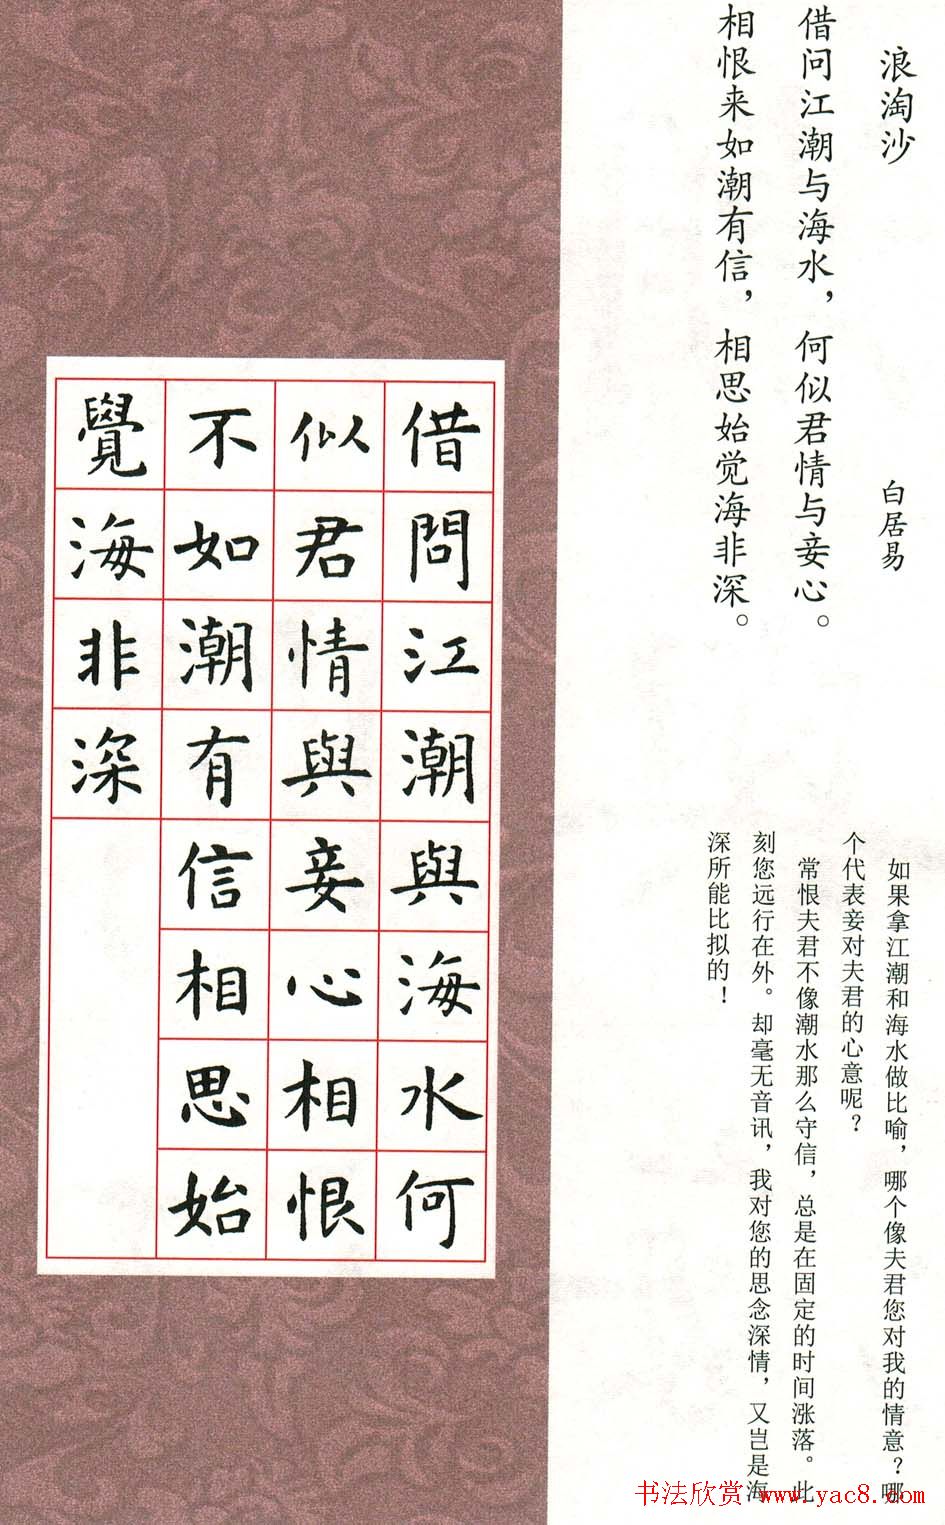 浪淘沙
白居易
借问江潮与海水，何似君情与妾心。
相恨来如潮有信，相思始觉海非深。
如果拿江潮和海水做比喻，哪个像夫君您对我的情意？哪
个代表妾对夫君的心意呢？
常恨夫君不像潮水那么守信，总是在固定的时间涨落。此
刻您远行在外。却毫无音讯，我对您的思念深情，又岂是海
深所能比拟的！
借問江潮與海水何
似君情與妾心相恨
不如潮有信相思始
覺海非深
书法欣赏 www.yac8.com